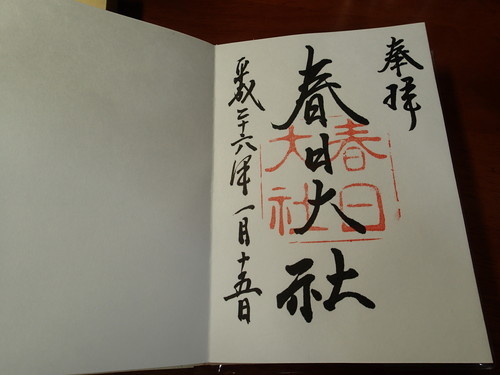 奉拝
春日大社
春日大社
平成二十六年一月十五日